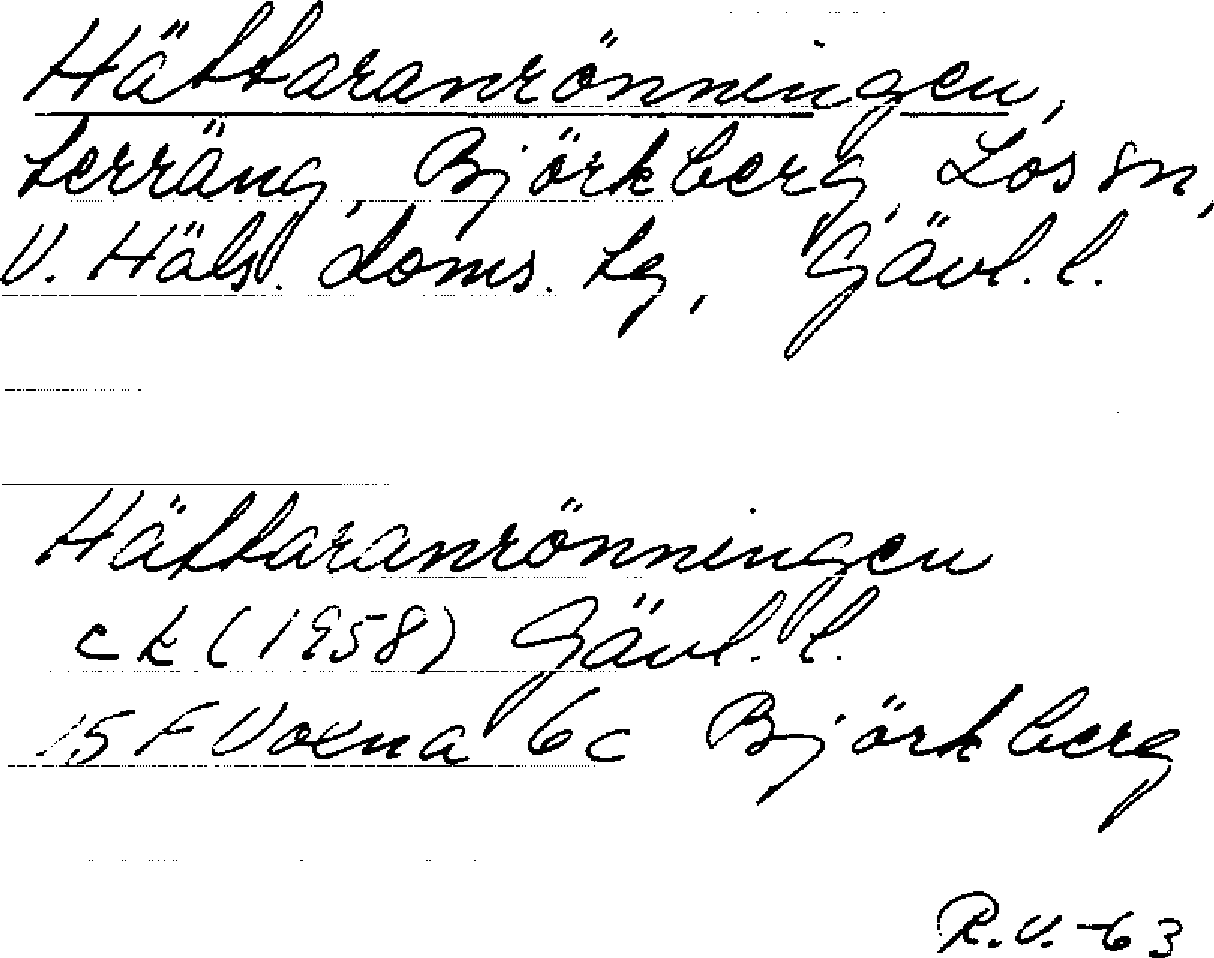 Hättaranrönningen,
terräng, Björkberg, Los sn,
V. Häls. doms. tg, Gävl. l.
Hättaranrönningen
ek (1958) Gävl. l.
15 F Voxna 6c Björkberg
R.V.-63